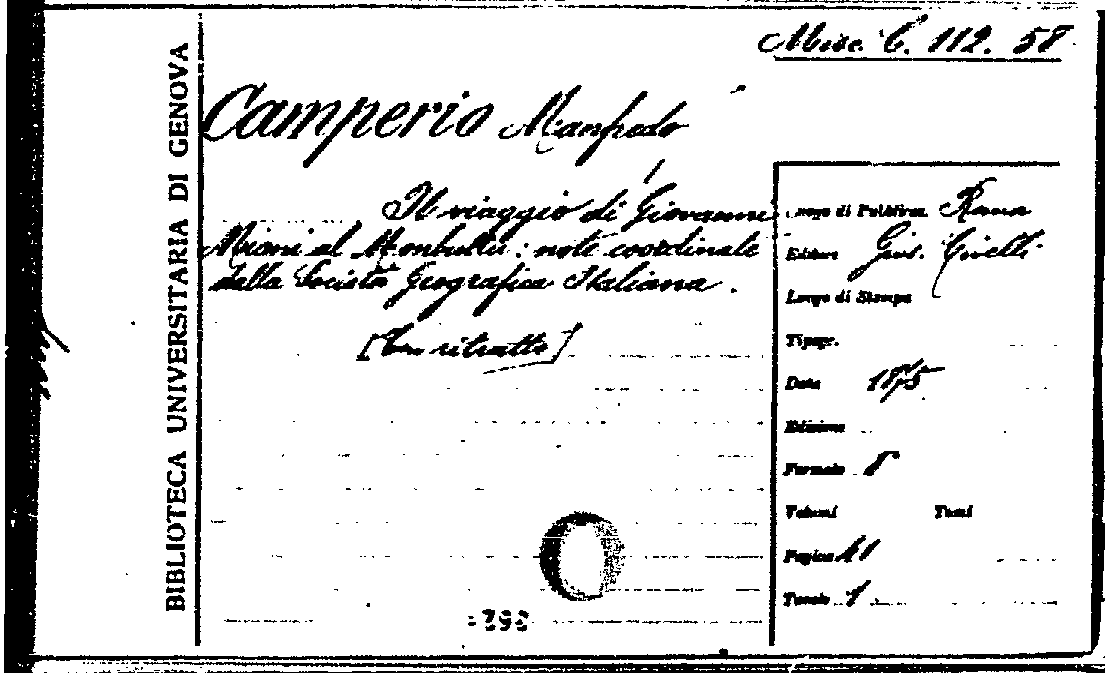 Misc. C. 112. 58
BIBLIOTECA UNIVERSITARIA DI GENOVA
Camperio Manfredo
Il viaggio di Giovanni
Miani al Monbuttu: note coordinate
dalla Società Geografica Italiana.
[Con ritratto]
Luogo di Pubblicaz. Roma
Editore Gius. Civelli
Luogo di Stampa
Tipogr.
Data 1875
Edizione
Formato 8
Volumi Tomi
Pagine 41
Tavole 1